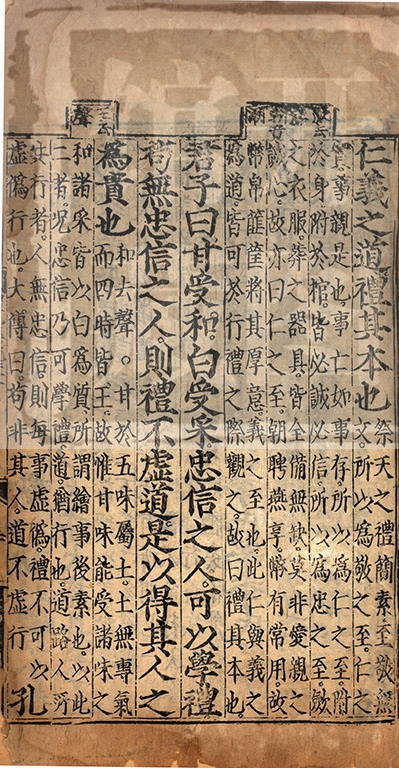 仁義之道禮其本也
祭天之禮簡素至敬無
文所以為敬之至仁之
實事親是也事亡如事存所以為仁之至附
於身附於棺皆必誠必信所以為忠之至斂
之衣服葬之器具皆全備無缺莫非愛親之
誠心故亦曰仁之至朝聘燕享幣有常用故
幣帛篚筐將其厚意義之至也此仁與義之
為道皆可於行禮之際觀之故曰禮其本也
君子曰甘受和白受采忠信之人可以學禮
苟無忠信之人則禮不虛道是以得其人之
為貴也
和去聲○甘於五味屬土土無專氣
而四時皆王故惟甘味能受諸味之
和諸采皆以白為質所謂繪事後素也以此
二者況忠信乃可學禮道猶行也道路人所
共行者人無忠信則每事虛偽禮不可以
虛偽行也大傳曰苟非其人道不虛行
孔
王去
聲